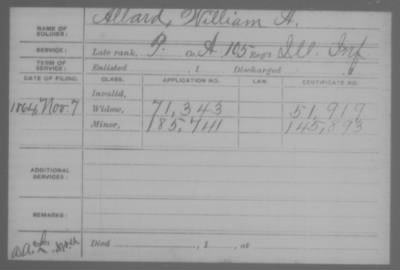 NAME OF SOLDIER: Allard, William A.
SERVICE: Late rank, P. Co. A, 105 Reg't Ill. Inf
TERM OF SERVICE: Enlisted , 1 Discharged , 1
DATE OF FILING. CLASS. APPLICATION NO. LAW. CERTIFICATE NO.
Invalid,
1864 Nov. 7 Widow, 71,343 51,919
Minor, 185,741 145,893
ADDITIONAL SERVICES:
REMARKS:
Died , 1 , at